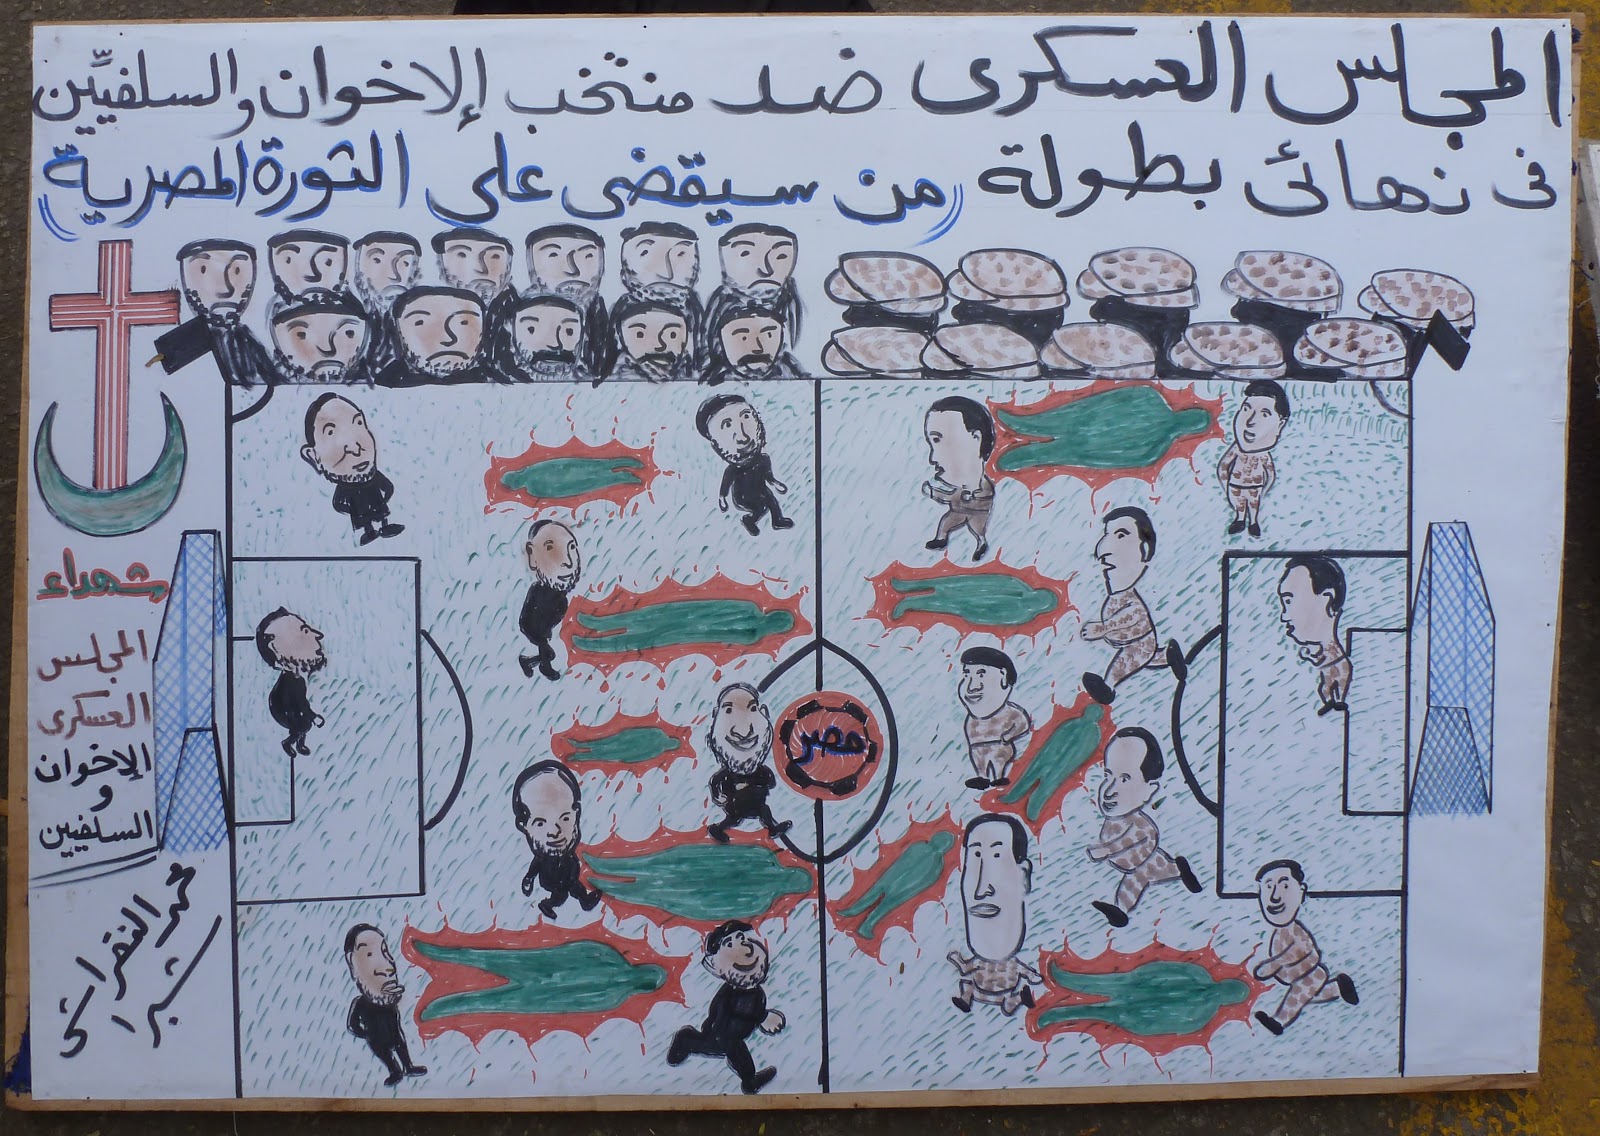 المجلس العسكرى ضد منتخب الاخوان والسلفيِّين
فى نهائى بطولة (( من سيقضى على الثورة المصرية ))
مصر
شهداء
المجلس
العسكرى
الإخوان
و
السلفيين
شبرا